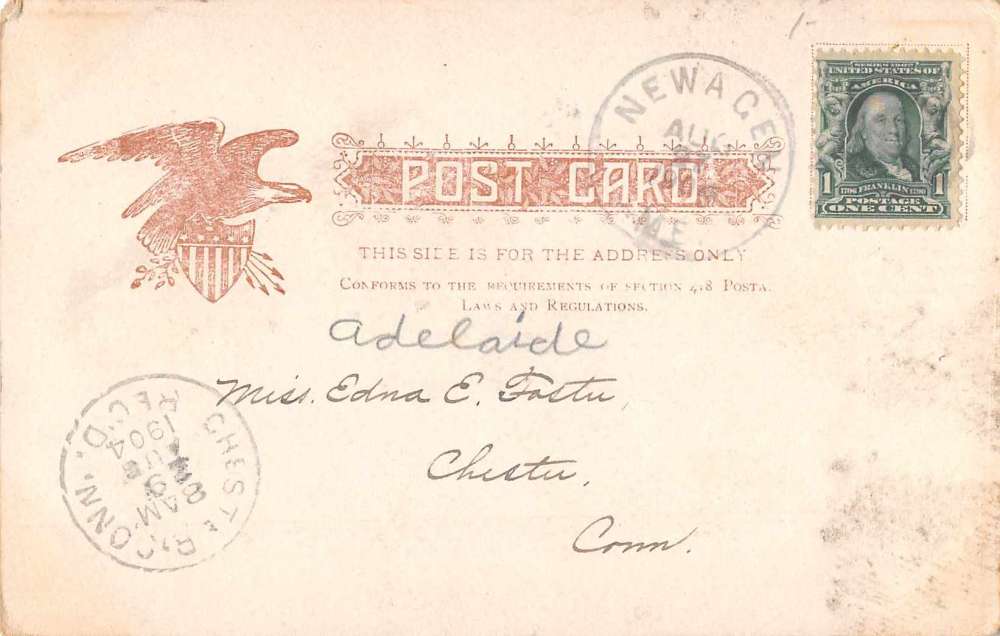 SERIES 1902
UNITED STATES OF
AMERICA
1 1706 FRANKLIN 1790 1
POSTAGE
ONE CENT
NEWAGEN
AUG
ME.
POST CARD
THIS SIDE IS FOR THE ADDRESS ONLY
CONFORMS TO THE REQUIREMENTS OF SECTION 418 POSTA
LAWS AND REGULATIONS.
Adelaide
Miss. Edna E. Foster,
Chester,
Conn.
CHESTER, CONN.
REC'D.
1904
8 AM